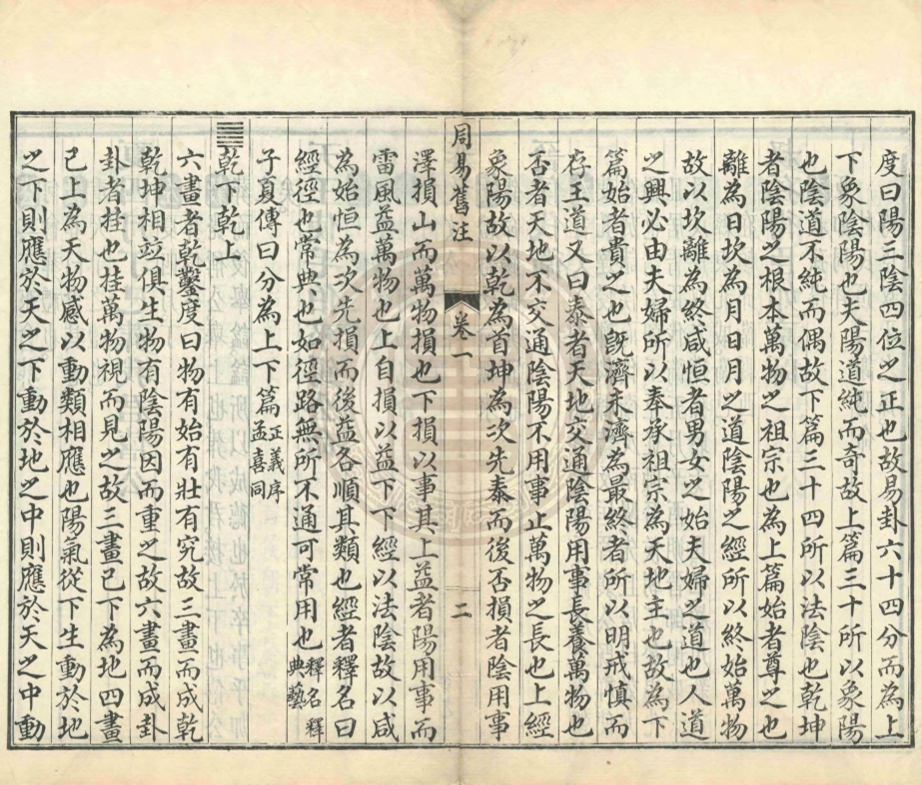 度曰陽三陰四位之正也故易卦六十四分而為上
下象陰陽也夫陽道純而奇故上篇三十所以象陽
也陰道不純而偶故下篇三十四所以法陰也乾坤
者陰陽之根本萬物之祖宗也為上篇始者尊之也
離為日坎為月日月之道陰陽之經所以終始萬物
故以坎離為終咸恒者男女之始夫婦之道也人道
之興必由夫婦所以奉承祖宗為天地主也故為下
篇始者貴之也既濟未濟為最終者所以明戒慎而
存王道又曰泰者天地交通陰陽用事長養萬物也
否者天地不交通陰陽不用事止萬物之長也上經
象陽故以乾為首坤為次先泰而後否損者陰用事
周易舊注
卷一
二
澤損山而萬物損也下損以事其上益者陽用事而
雷風益萬物也上自損以益下下經以法陰故以咸
為始恒為次先損而後益各順其類也經者釋名曰
經徑也常典也如徑路無所不通可常用也釋名釋
典藝
子夏傳曰分為上下篇正義序
孟喜同
乾下乾上
六畫者乾鑿度曰物有始有壯有究故三畫而成乾
乾坤相竝俱生物有陰陽因而重之故六畫而成卦
卦者挂也挂萬物視而見之故三畫已下為地四畫
已上為天物感以動類相應也陽氣從下生動於地
之下則應於天之下動於地之中則應於天之中動